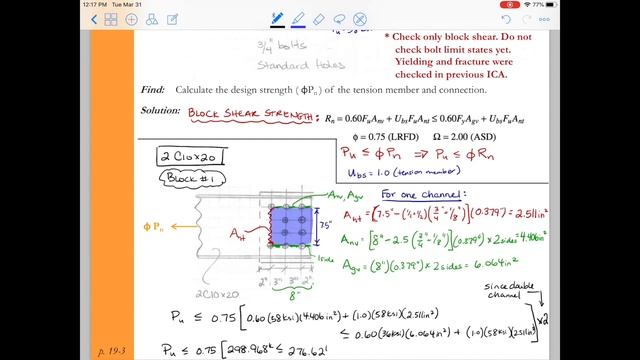 12:17 PM Tue Mar 31
77%
3/4" bolts
Standard Holes
* Check only block shear. Do not
check bolt limit states yet.
Yielding and fracture were
checked in previous ICA.
Find: Calculate the design strength (ϕPn) of the tension member and connection.
Solution: BLOCK SHEAR STRENGTH: Rn = 0.60FuAnv + UbsFuAnt ≤ 0.60FyAgv + UbsFuAnt
ϕ = 0.75 (LRFD) Ω = 2.00 (ASD)
Pu ≤ ϕPn ⇒ Pu ≤ ϕRn
Ubs = 1.0 (tension member)
2 C10x20
Block #1
For one channel:
Anv, Agv
ϕPn
Ant
7.5"
1 side
2" 3" 3" 2"
8"
2C10x20
Agv = (8")(0.379") x 2 sides = 6.064 in²
since double
channel
x2
Pu ≤ 0.75 [0.60(58ksi)(4.406in²) + (1.0)(58ksi)(2.511in²)
≤ 0.60(36ksi)(6.064in²) + (1.0)(58ksi)(2.511in²)]
Pu ≤ 0.75 [298.968k ≤ 276.62
p. 19-3